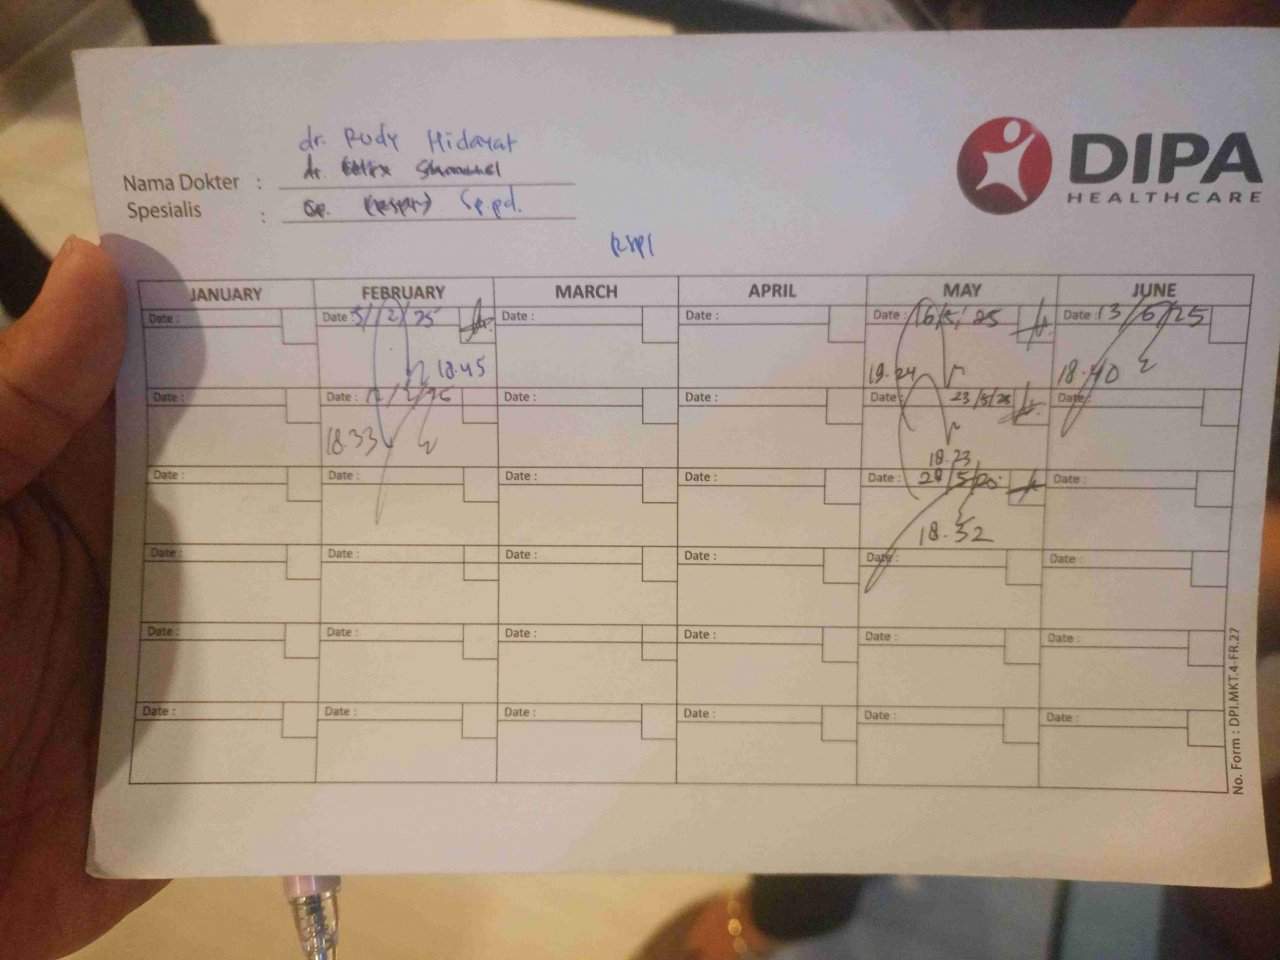 dr. Rudy Hidayat
DIPA
HEALTHCARE
Nama Dokter :
Spesialis : Sp. Sp.pd.
JANUARY FEBRUARY MARCH APRIL MAY JUNE
Date : Date : 5/2/25 Date : Date : Date : 16/5/25 Date : 13/6/25
18.45 19.24 18.40
Date : Date : Date : Date : Date : 23/5/25 Date :
18.33 18.23
Date : Date : Date : Date : Date : Date :
18.52
Date : Date : Date : Date : Date : Date :
Date : Date : Date : Date : Date : Date :
Date : Date : Date : Date : Date : Date :
No. Form : DPI.MKT.4-FR.27